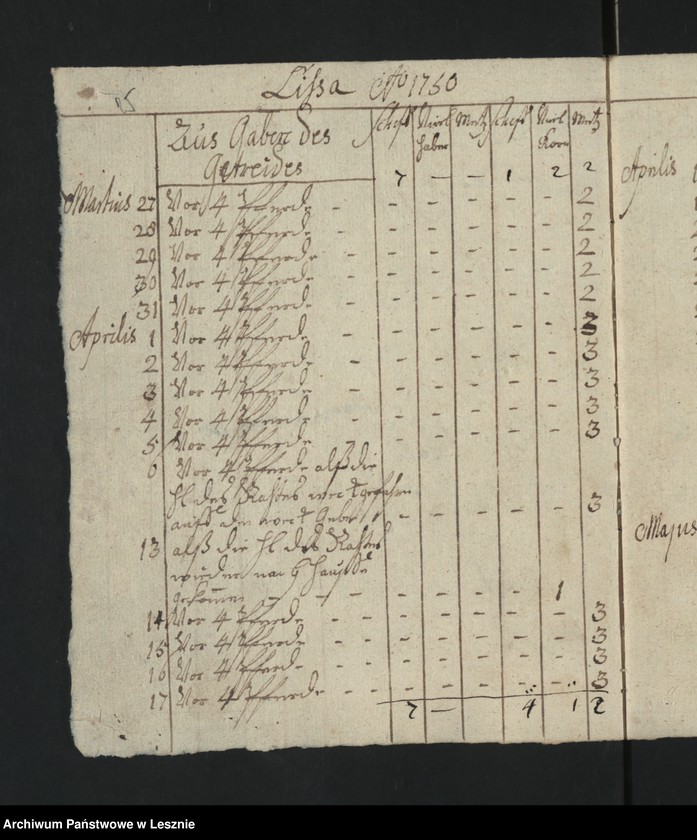 Lissa Ao 1750
Aus Gaben des Scheff Virtl Metz Scheff Virtl Metz
Haber Korn
Getreides 7 — — 1 2 2
Aprilis
Martius 27 Vor 4 Pferde - - - - - - 2
28 Vor 4 Pferde - - - - - 2
29 Vor 4 Pferde - - - - - - 2
30 Vor 4 Pferde - - - - - - 2
31 Vor 4 Pferde - - - - - - 2
Aprilis 1 Vor 4 Pferde - - - - - - 3
2 Vor 4 Pferde - - - - - - 3
3 Vor 4 Pferde - - - - - - 3
4 Vor 4 Pferde - - - - - - 3
5 Vor 4 Pferde - - - - - 3
6 Vor 4 Pferde alß die
Hl des Rahtes
3
Majus
13 alß die Hl des Rahtes
wieder nach Hauße
gekommen - - - - - 1
14 Vor 4 Pferde - - - - - - - 3
15 Vor 4 Pferde - - - - - - - 3
16 Vor 4 Pferde - - - - - - - 3
17 Vor 4 Pferde - - - - - - - 3
7 — 4 1 2
Archiwum Państwowe w Lesznie